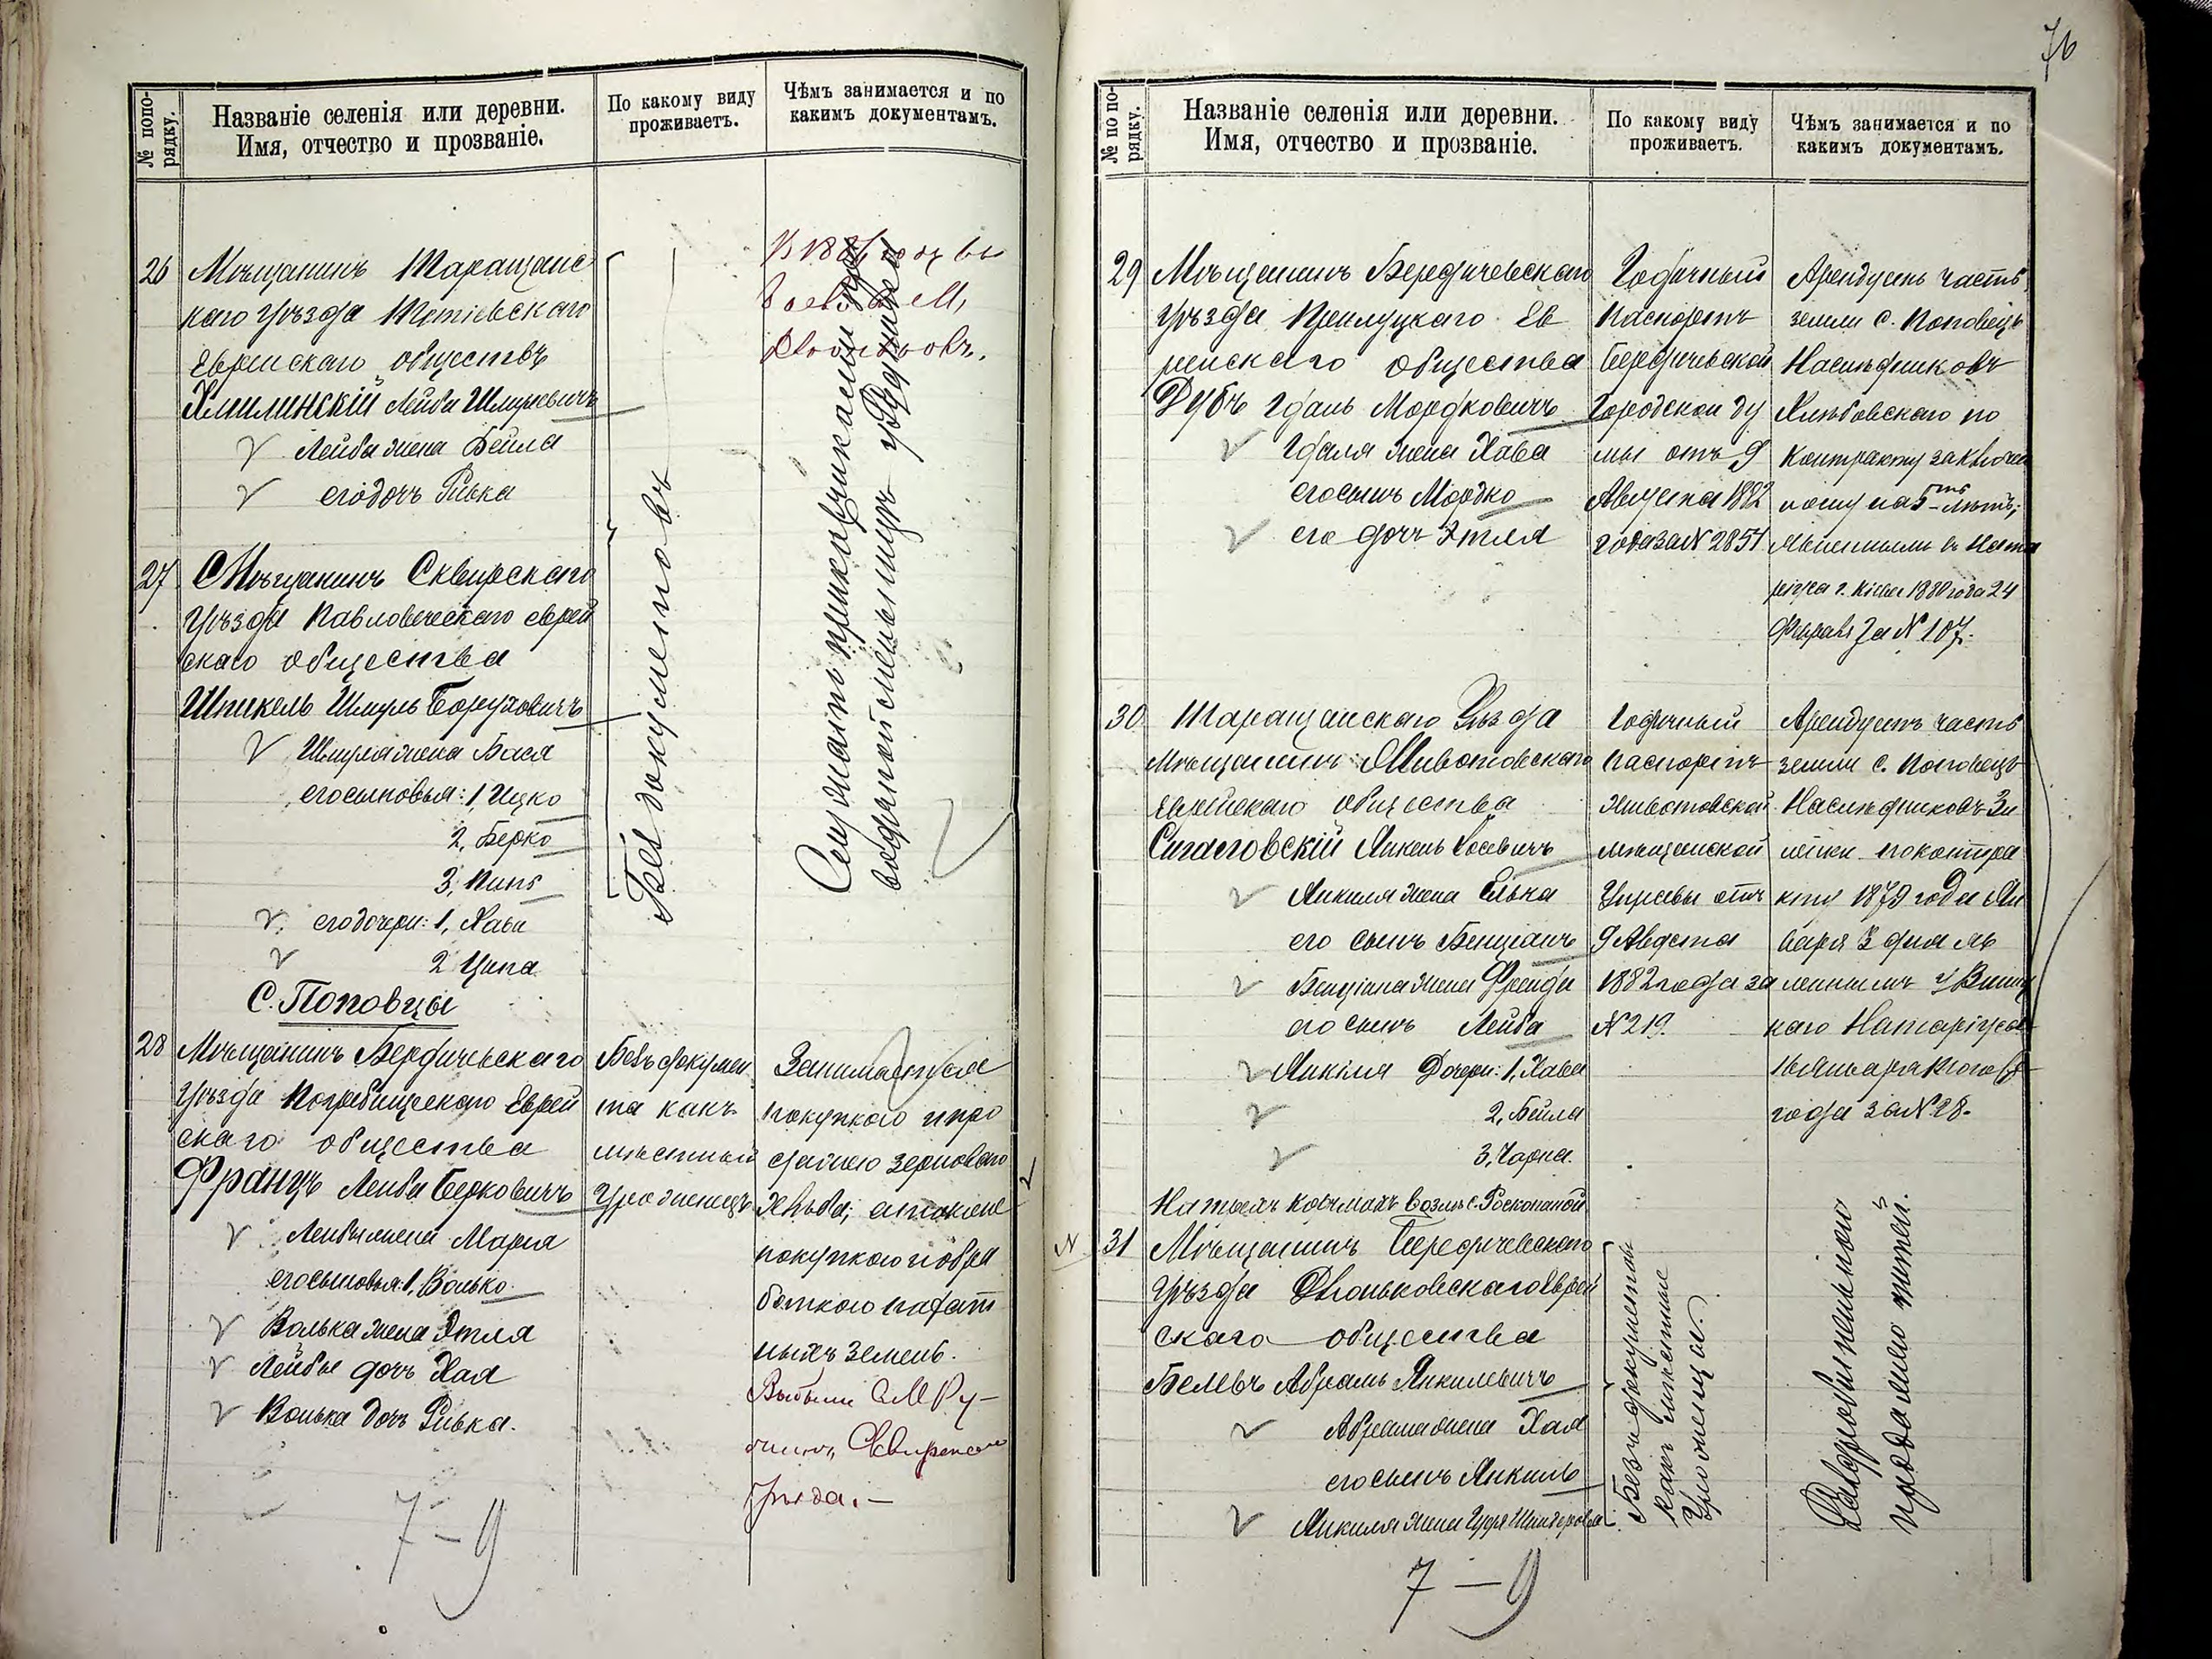 № попо-
рядку.
Названіе селенія или деревни.
Имя, отчество и прозваніе.
По какому виду
проживаетъ.
Чѣмъ занимается и по
какимъ документамъ.
26
Мѣщанинъ Таращанс
каго Уѣзда Тетіевскаго
Еврейскаго обществъ
Хмилинскій Лейба Шмулевичъ
Лейба жена Бейла
его дочь Ривка
27
Мѣщанинъ Сквирскаго
Уѣзда Паволочскаго еврей
скаго общества
Шпикель Шмуль Боруховичъ
Шмуля жена Бася
его сыновья: 1, Ицко
2, Берко
3, Пинс
его дочери: 1, Хава
2 Ципа
Без документовъ
В 188 году вы
Служатъ прикащиками при
водяной мельницѣ
С. Поповцы
28
Мѣщанинъ Бердичевскаго
Уѣзда Погребищескаго Еврей
скаго общества
Францъ Лейба Берковичъ
Лейбы жена Марія
его сыновья: 1, Волько
Волька жена Этля
Лейбы дочь Хая
Волька дочь Ривка.
Безъ докумен
та какъ
мѣстный
Уроженецъ
Занимается
покупкою и про
дажею зерноваго
хлѣба; а также
покупкою и обра
боткою
ныхъ земель.
Выбыли в М Ру-
жинъ, Сквирскаго
уѣзда. —
7 — 9
76
№ по по-
рядку.
Названіе селенія или деревни.
Имя, отчество и прозваніе.
По какому виду
проживаетъ.
Чѣмъ занимается и по
какимъ документамъ.
29
Мѣщанинъ Бердичевскаго
Уѣзда Прилуцкаго Ев
рейскаго общества
Дубъ Гдаль Мордковичъ
Гдаля жена Хава
его сынъ Мордко
его дочь Этля
Годичный
Паспортъ
Бердичевской
Городской ду
мы отъ 9
Августа 1882
года за N 2851
Арендуетъ часть
земли с. Поповецъ
Наслѣдниковъ
Хлѣбовскаго по
Контракту заключен
ному на 5 лѣтъ,
Явленнымъ в Нота
ріуса г. Кіева 1880 года 24
Феврал за N 107.
30
Таращанскаго Уѣзда
Мѣщанинъ Животовскаго
еврейскаго общества
Сигаловскій Янкель Іосевичъ
Янкиля жена Елька
его сынъ Бенціанъ
Бенціана жена Фрейда
его сынъ Лейба
Янкіля Дочери: 1, Хава
2, Бейла
3, Чарна.
Годичный
паспортъ
Животовской
мѣщанской
Управы отъ
9 Августа
1882 года за
N 219.
Арендуетъ часть
земли с. Поповецъ
Наслѣдниковъ
по контра
кту 1879 года Ян
варя 3 дня яв
ленныму у Винниц
каго Нотаріуса
Января
года за N 28.
На тыехъ корчмахъ возлѣ с. Росконаной
N 31
Мѣщанинъ Бердичевскаго
Уѣзда Дзюньковскаго еврей
скаго общества
Белевъ Абрамъ Янкилевичъ
Абрама жена Хая
его сынъ Янкиль
Янкиля жена
Безъ документовъ
какъ мѣстные
Уроженцы.
Раздробительною
продажею питей.
7 — 9